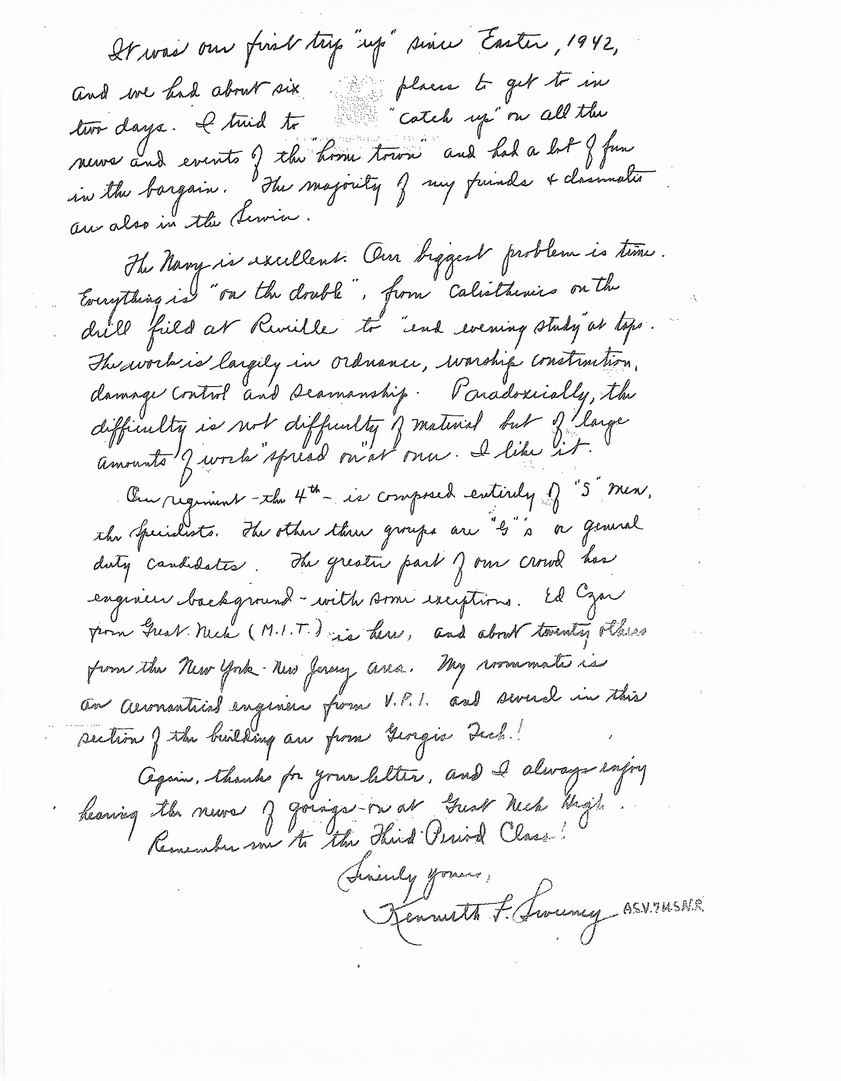 It was our first trip "up" since Easter, 1942,
and we had about six places to get to in
two days. I tried to "catch up" on all the
news and events of the "home town" and had a lot of fun
in the bargain. The majority of my friends & classmates
are also in the Service.
The Navy is excellent. Our biggest problem is time.
Everything is "on the double", from calisthenics on the
drill field at Reveille to "end evening study" at taps.
The work is largely in ordnance, warship construction,
damage control and seamanship. Paradoxically, the
difficulty is not difficulty of material but of large
amounts of work "spread on" at once. I like it.
Our regiment - the 4th - is composed entirely of "S" men,
the specialists. The other three groups are "G"'s or general
duty candidates. The greater part of our crowd has
engineer background - with some exceptions. Ed Czar
from Great Neck (M.I.T.) is here, and about twenty others
from the New York - New Jersey area. My roommate is
an aeronautical engineer from V.P.I. and several in this
section of the building are from Georgia Tech.!
Again, thanks for your letter, and I always enjoy
hearing the news of goings-on at Great Neck High.
Remember me to the Third Period Class!
Sincerely yours,
Kenneth F. Sweeney